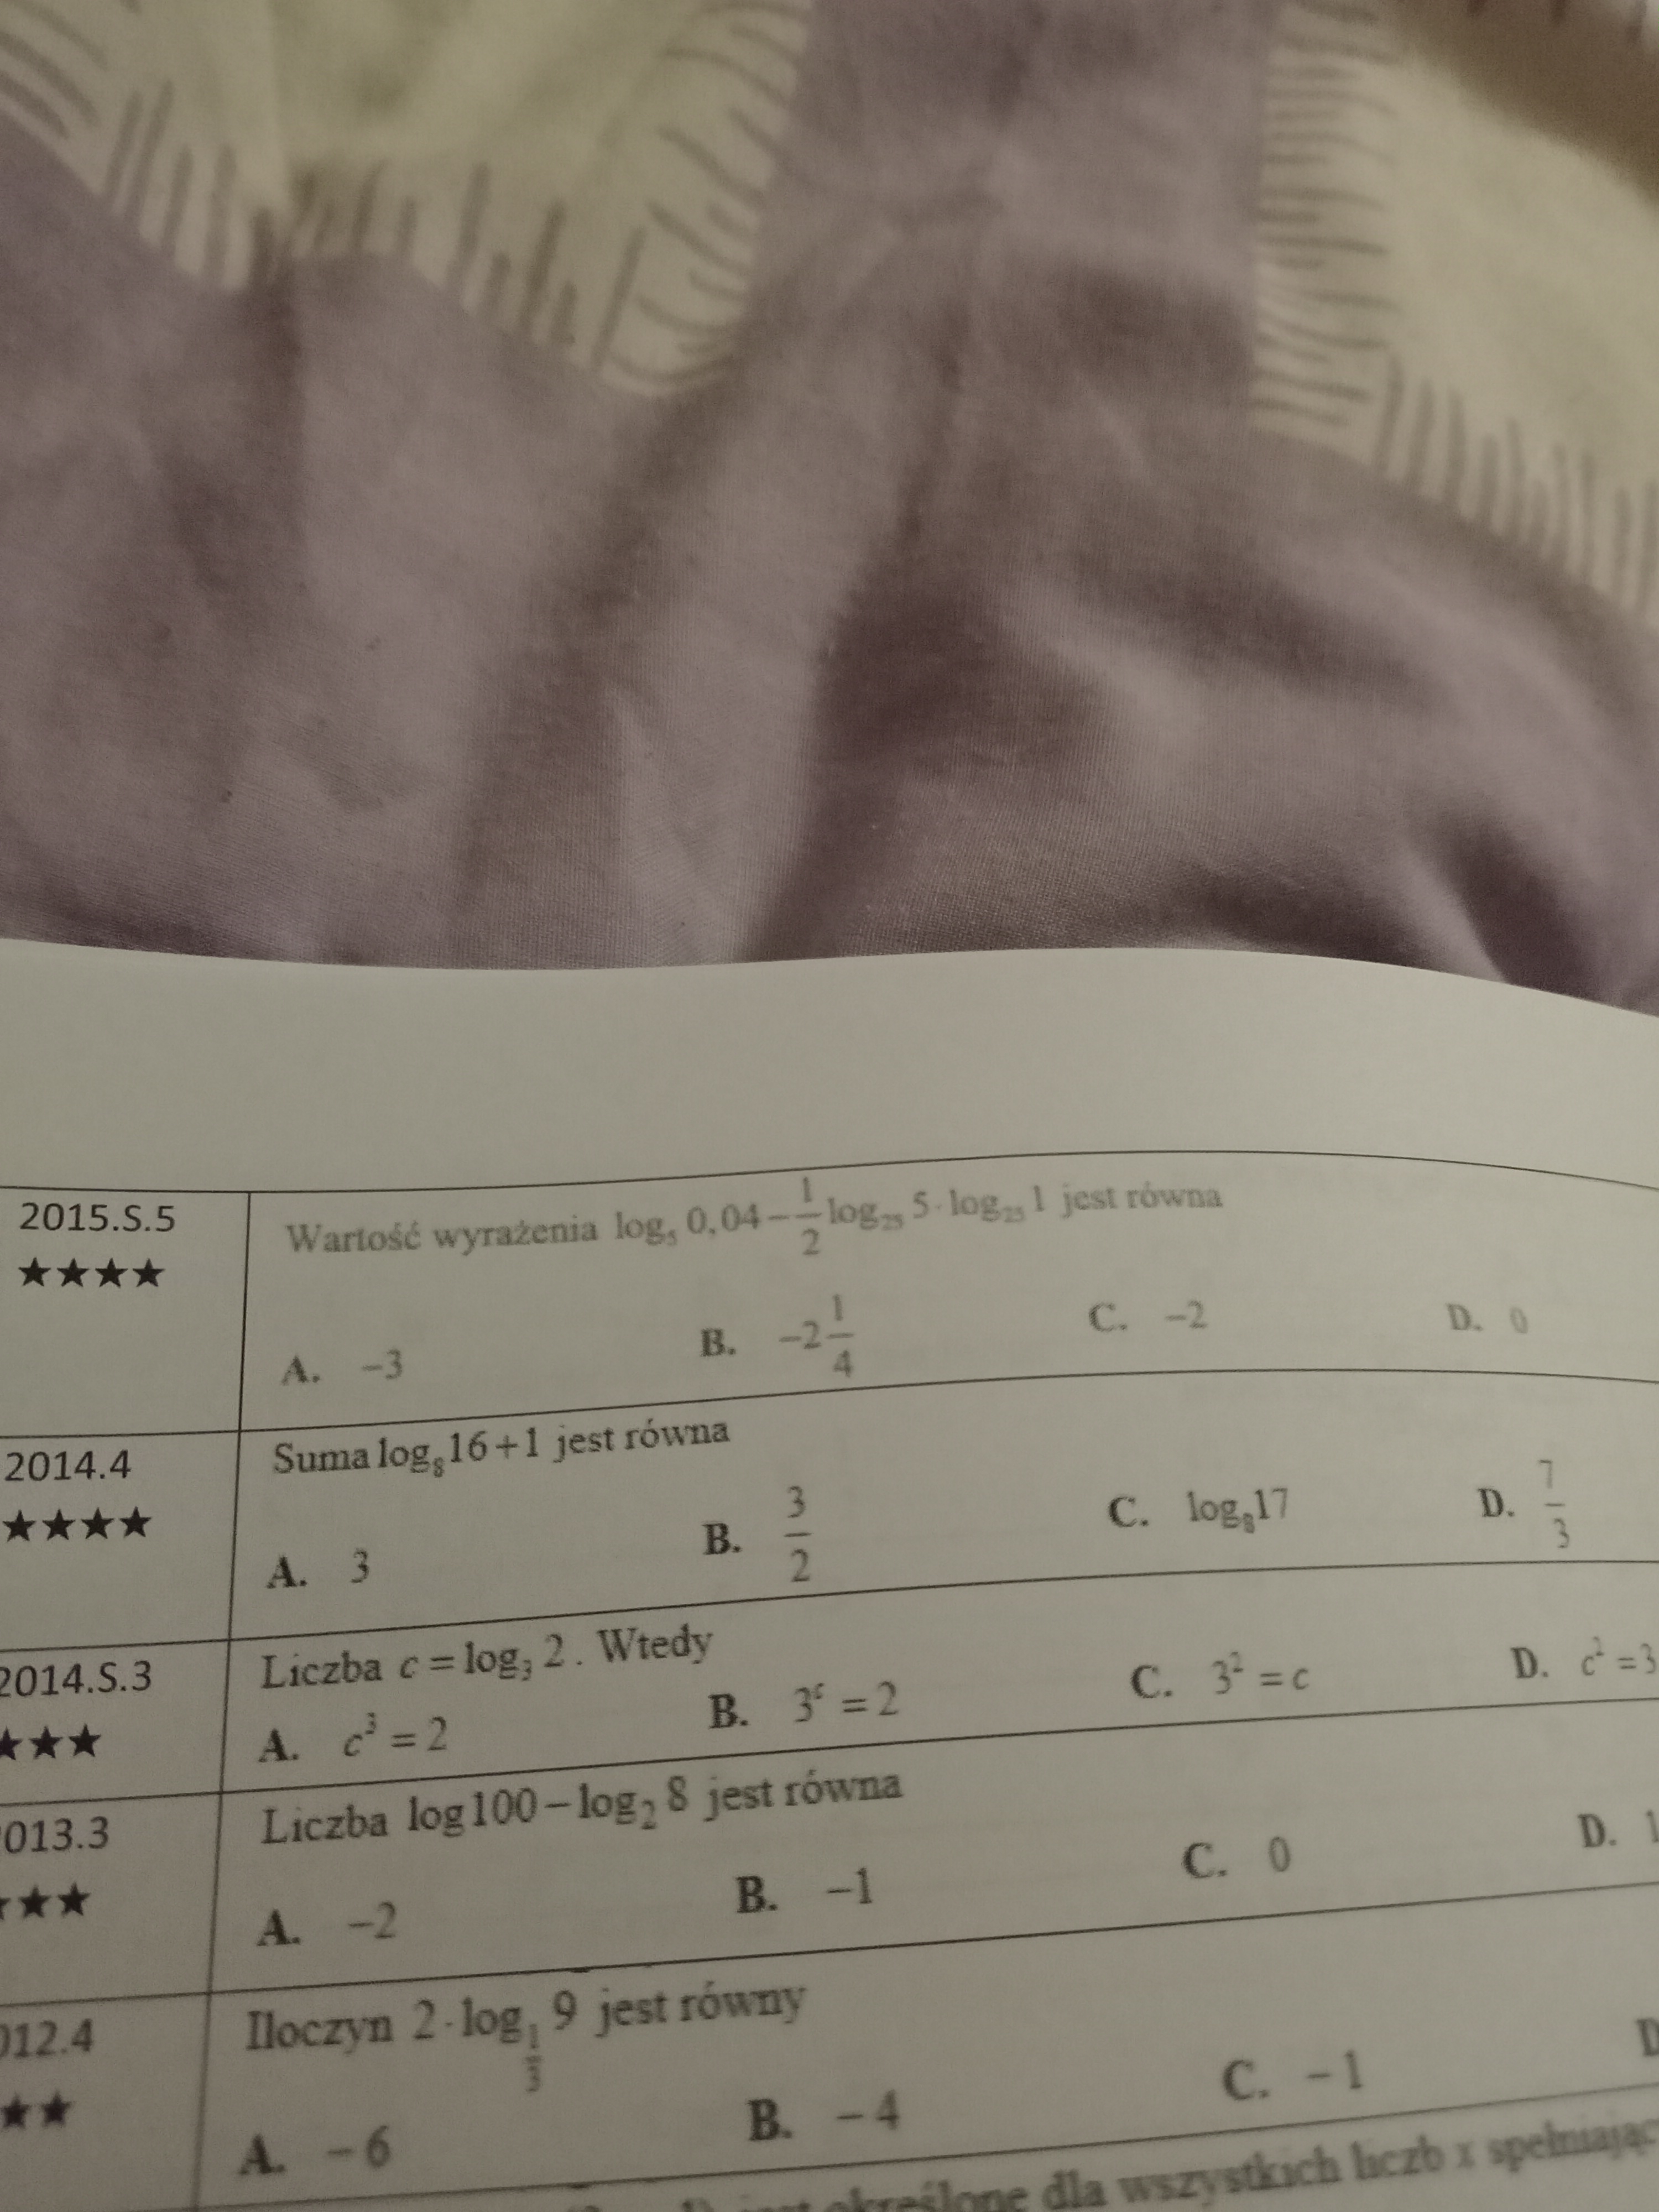 2015.S.5
★★★★
Wartość wyrażenia log₅ 0,04 − 1/2 log₂₅ 5 · log₂₅ 1 jest równa
A. −3 B. −2 1/4 C. −2 D. 0
2014.4
★★★★
Suma log₈16+1 jest równa
A. 3 B. 3/2 C. log₈17 D. 7/3
2014.S.3
★★★
Liczba c = log₃ 2. Wtedy
A. c³ = 2 B. 3ᶜ = 2 C. 3² = c D. c² = 3
013.3
★★★
Liczba log100 − log₂ 8 jest równa
A. −2 B. −1 C. 0 D. 1
012.4
★★
Iloczyn 2 · log_(1/3) 9 jest równy
A. −6 B. −4 C. −1 D
jest określone dla wszystkich liczb x spełniając